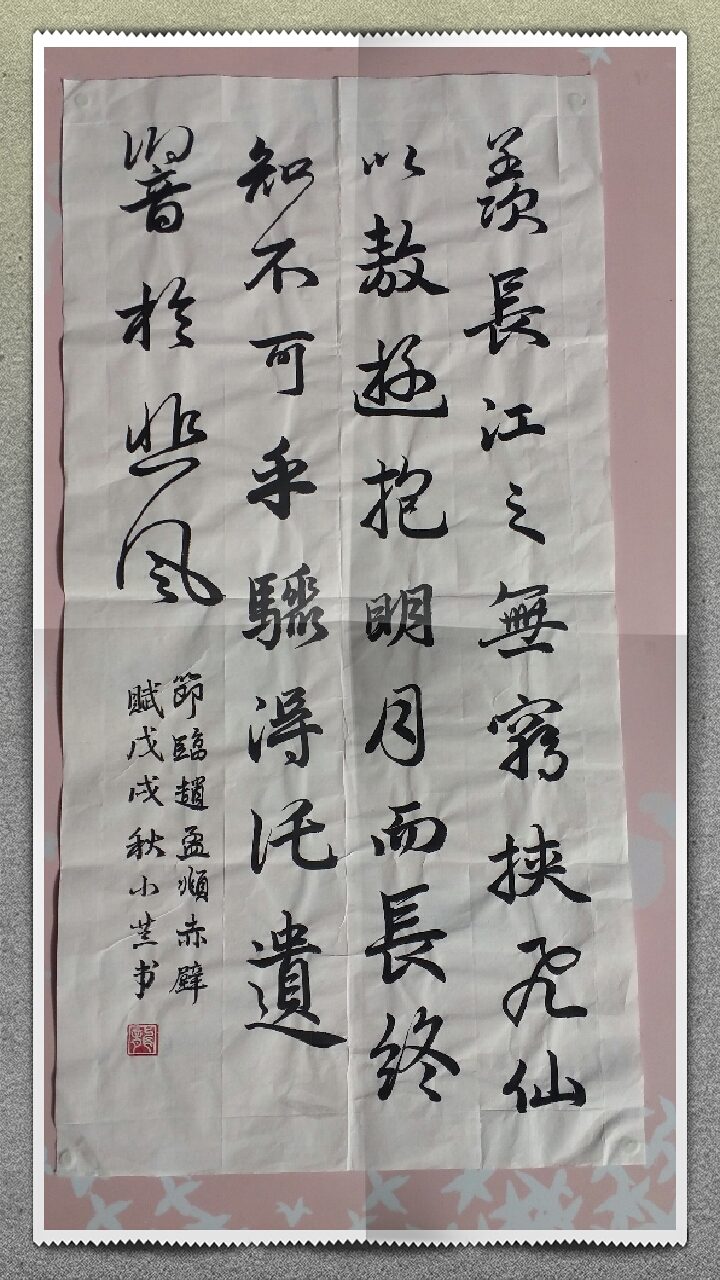 羨長江之無窮挾飛仙
以敖遊抱明月而長終
知不可乎驟得托遺
響於悲風
節臨趙孟順赤壁
賦戊戌秋小芸书